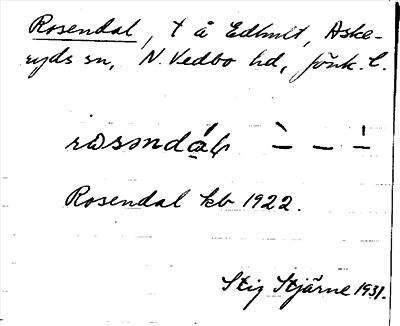 Rosendal, t å Edhult, Aske-
ryds sn, N. Vedbo hd, Jönk. l.
Rosendal kb 1922.
Stig Stjärne 1931.